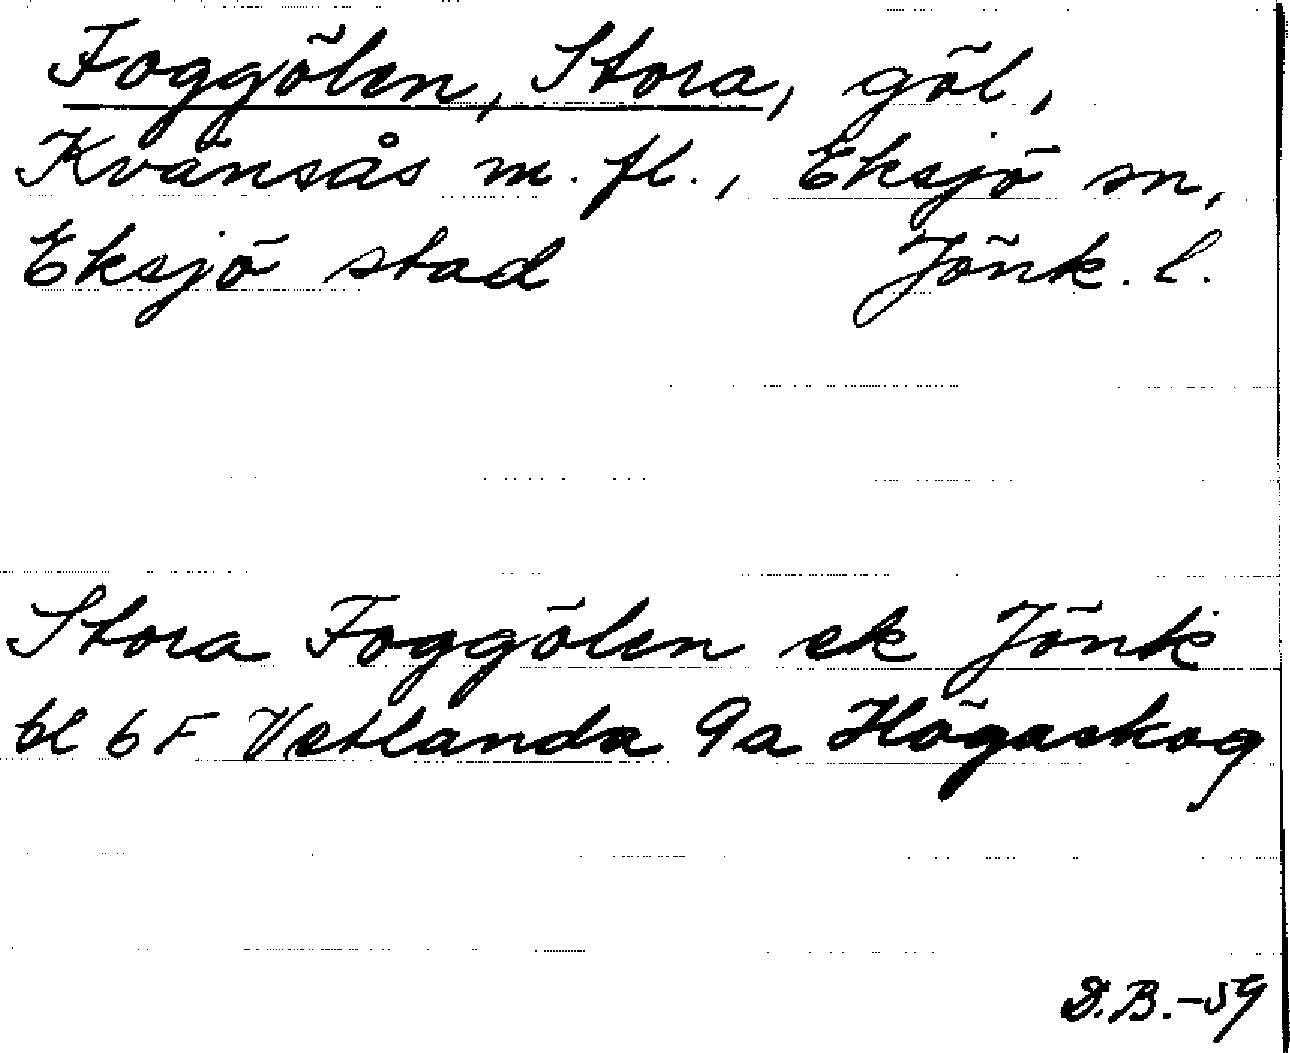 Foggölen, Stora, göl,
Kvänsås m. fl., Eksjö sn,
Eksjö stad Jönk. l.
Stora Foggölen ek Jönk
bl 6 F Vetlanda 9a Högaskog
D.B.-59